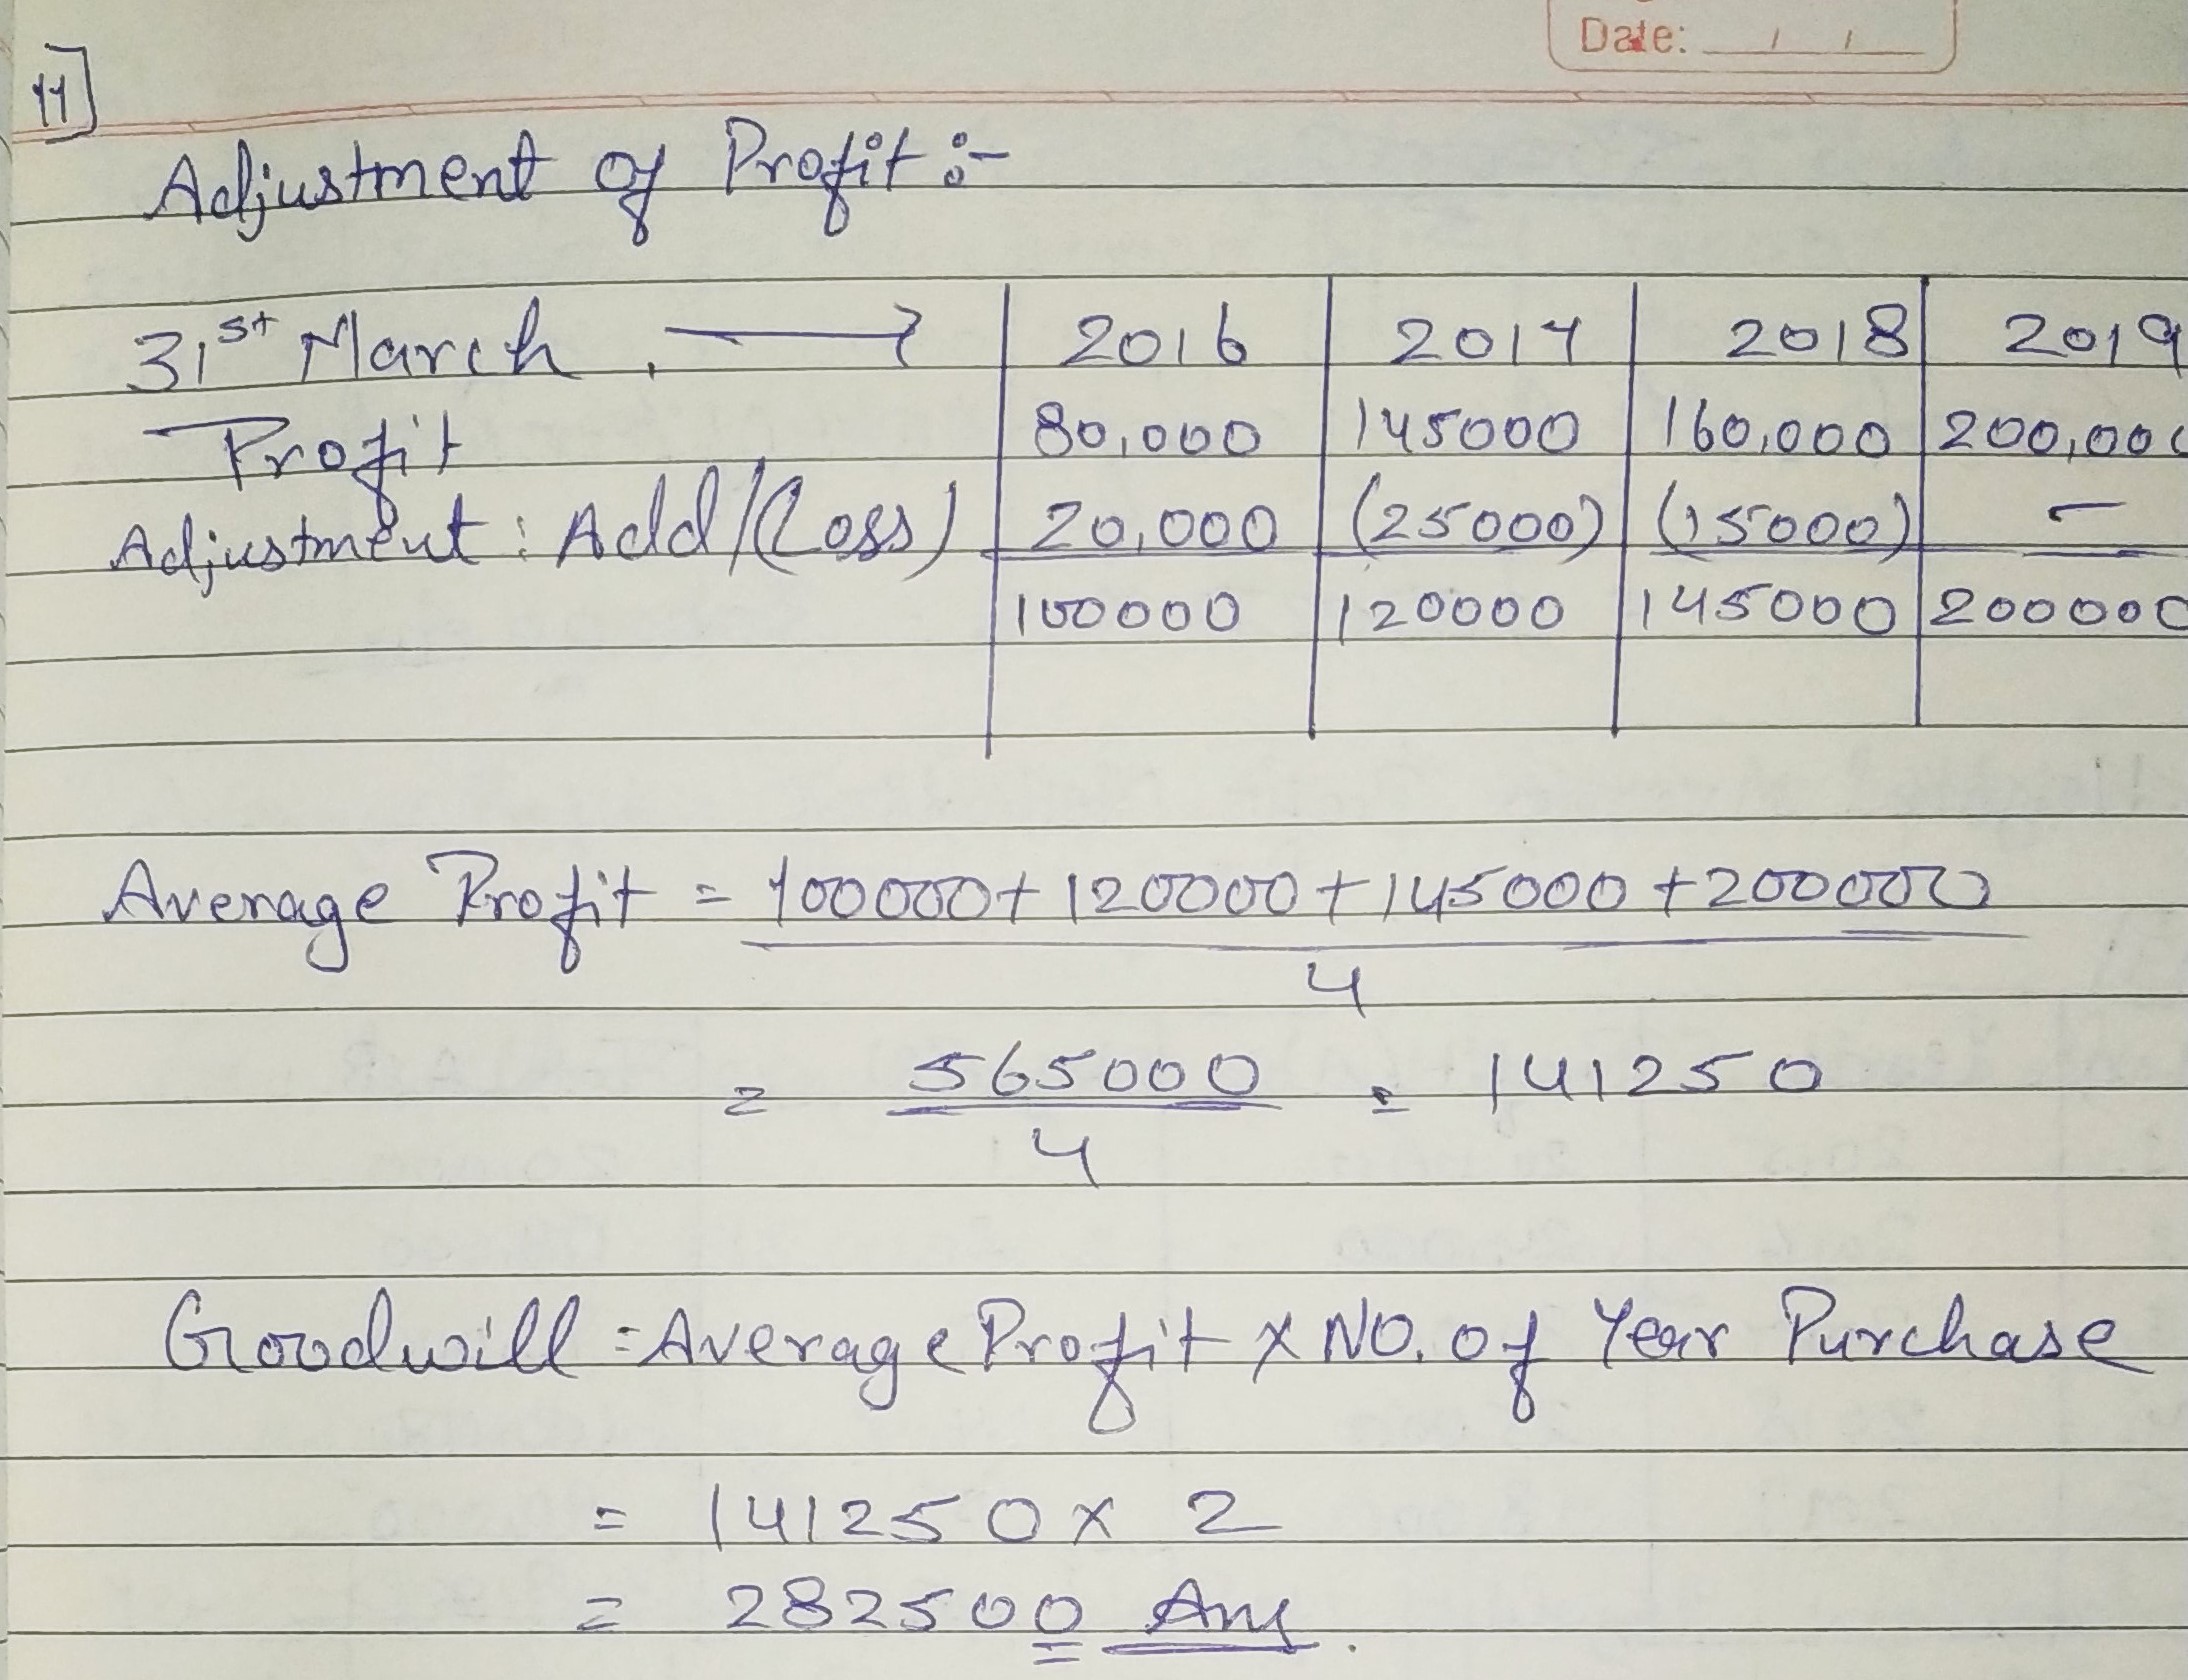 Date: / /
11]
Adjustment of Profit :-
31st March. → 2016 2017 2018 2019
Profit 80,000 145000 160,000 200,000
Adjustment: Add/(Loss) 20,000 (25000) (15000) -
100000 120000 145000 200000
Average Profit = 100000+120000+145000+200000
4
= 565000 = 141250
4
Goodwill = Average Profit x NO. of Year Purchase
= 141250 x 2
= 282500 Ans.